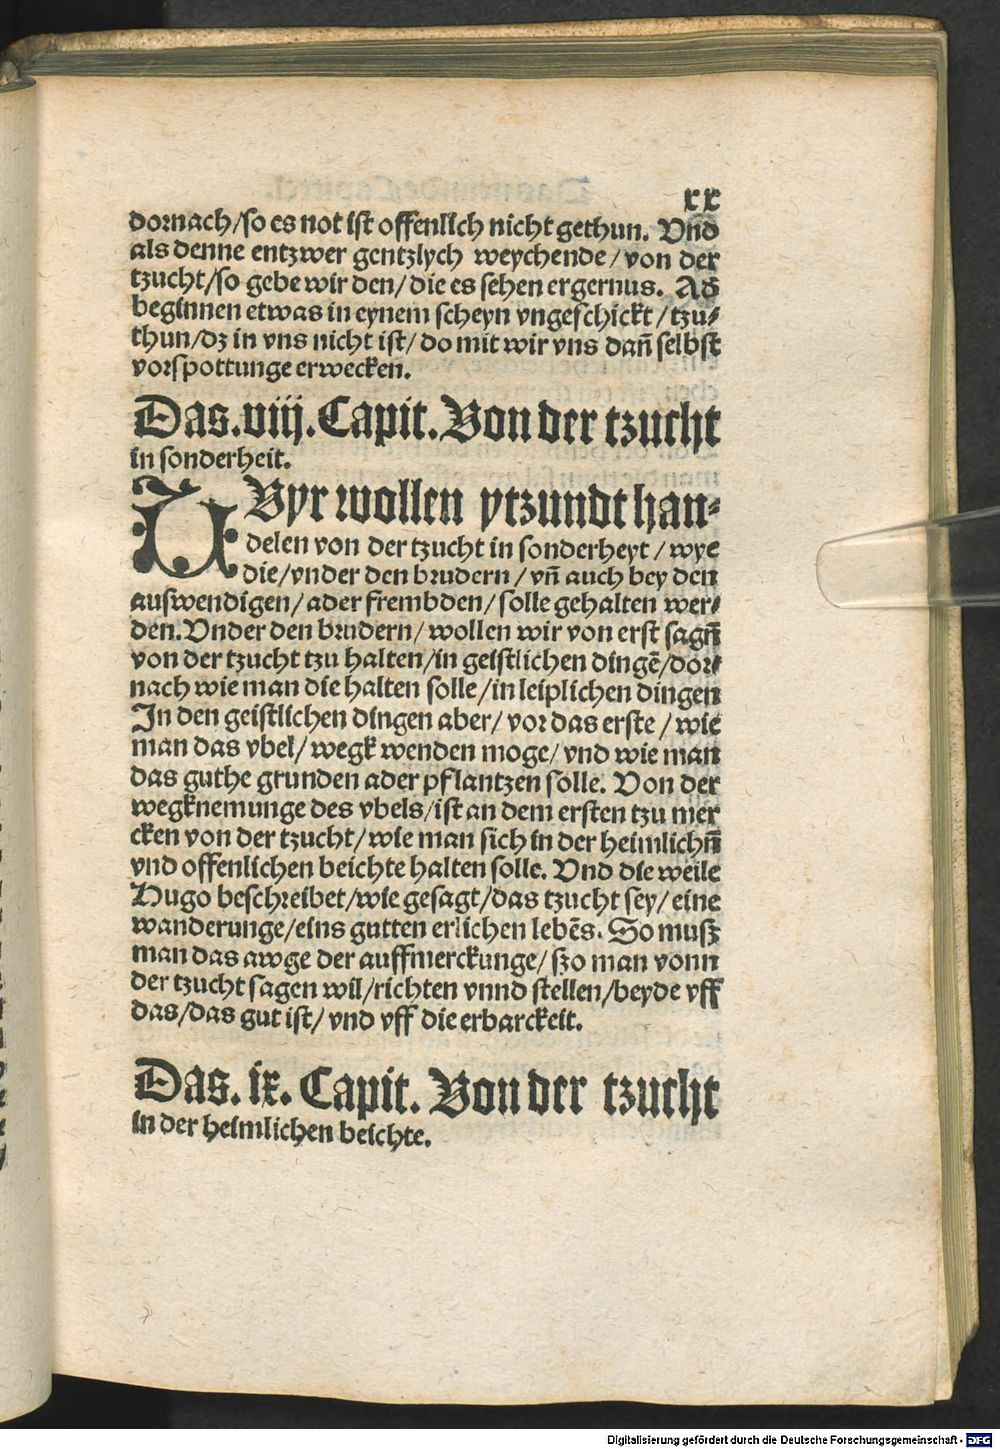 xx
dornach/so es not ist offenlich nicht gethun. Vnd
als denne entzwer gentzlych weychende/von der
tzucht/so gebe wir den/die es sehen ergernus. Ad
beginnen etwas in eynem scheyn vngeschickt/tzu⸗
thun/dz in vns nicht ist/do mit wir vns dañ selbst
vorspottunge erwecken.
Das.viij.Capit.Von der tzucht
in sonderheit.
WYr wollen ytzundt han⸗
delen von der tzucht in sonderheyt/wye
die/vnder den brudern/vñ auch bey den
auswendigen/ader frembden/solle gehalten wer⸗
den.Vnder den brudern/wollen wir von erst sagñ
von der tzucht tzu halten/in geistlichen dingẽ/dor⸗
nach wie man die halten solle/in leiplichen dingen
In den geistlichen dingen aber/vor das erste/wie
man das vbel/wegk wenden moge/vnd wie man
das guthe grunden ader pflantzen solle. Von der
wegknemunge des vbels/ist an dem ersten tzu mer
cken von der tzucht/wie man sich in der heimlichñ
vnd offenlichen beichte halten solle. Vnd die weile
Hugo beschreibet/wie gesagt/das tzucht sey/eine
wanderunge/eins gutten erlichen lebẽs. So musz
man das awge der auffmerckunge/szo man vonn
der tzucht sagen wil/richten vnnd stellen/beyde vff
das/das gut ist/vnd vff die erbarckeit.
Das.ix.Capit.Von der tzucht
in der heimlichen beichte.
Digitalisierung gefördert durch die Deutsche Forschungsgemeinschaft - DFG